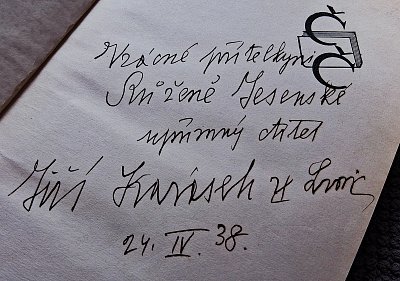 Č
Č
Vzácné přítelkyni
Růženě Jesenské
upřímný ctitel
Jiří Karásek ze Lvovic
24. IV. 38.